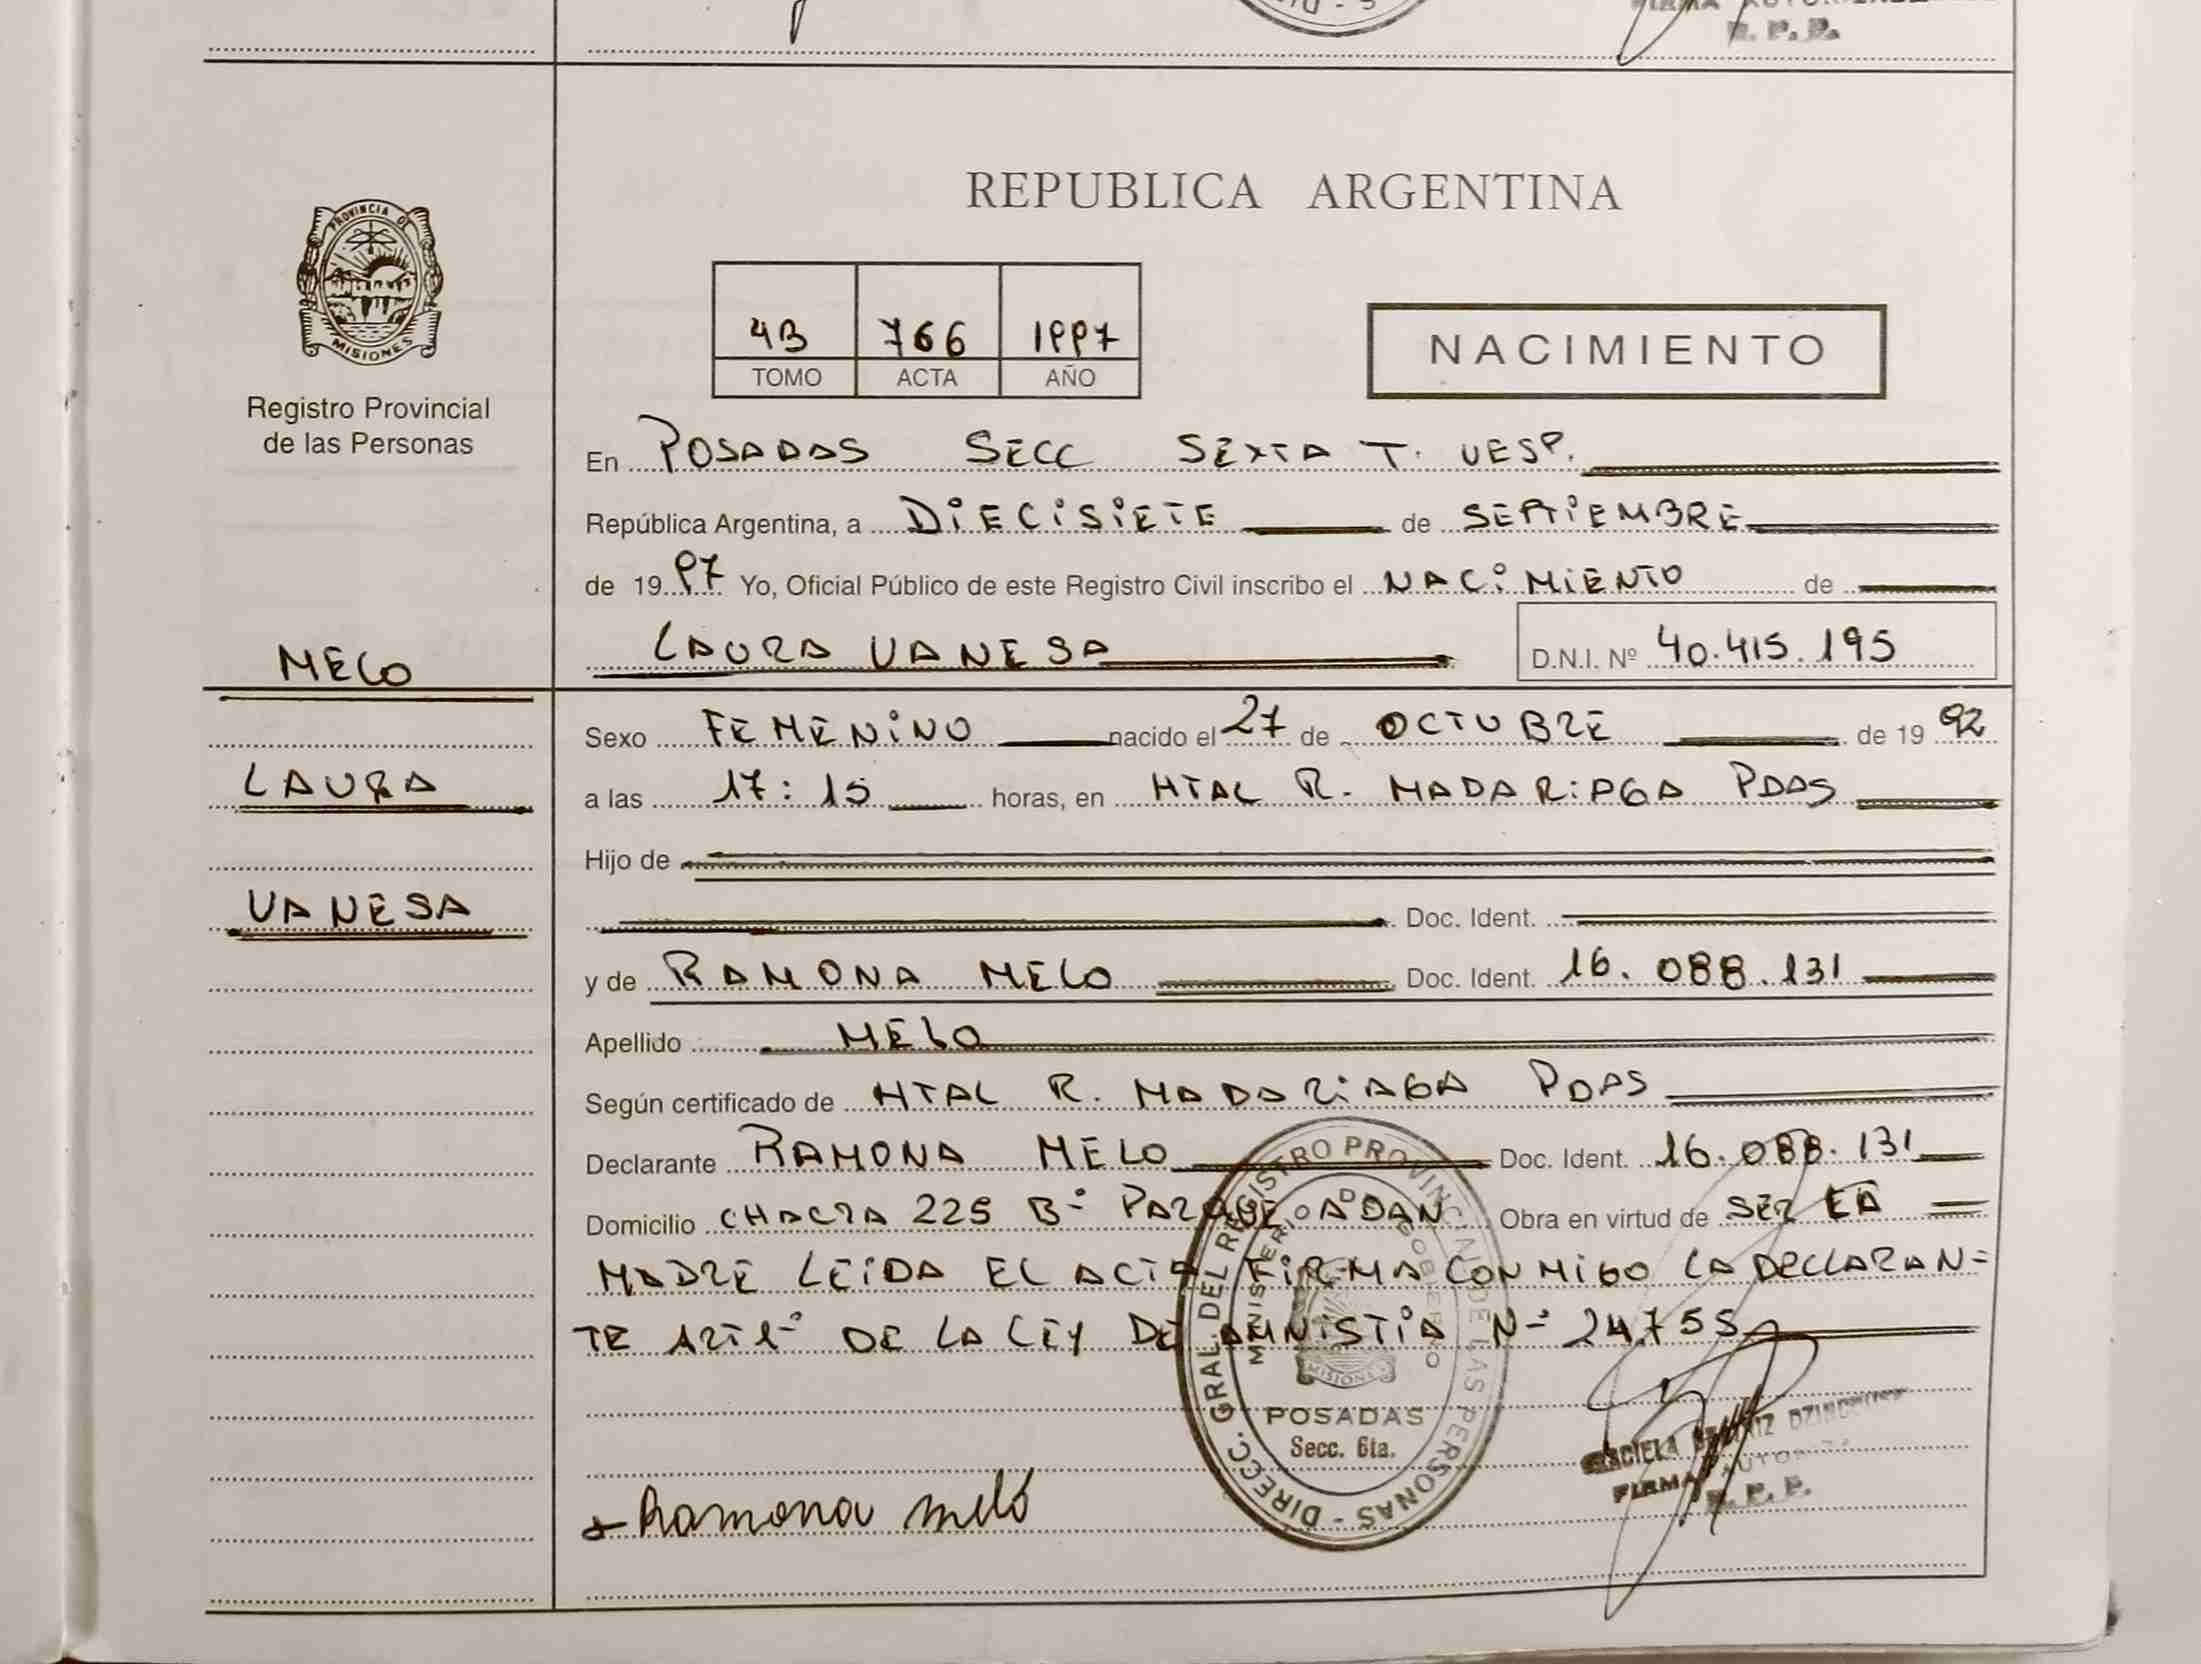 R. P. P.
PROVINCIA DE
MISIONES
Registro Provincial
de las Personas
REPUBLICA ARGENTINA
4B 766 1997
TOMO ACTA AÑO
NACIMIENTO
En POSADAS SECC SEXTA T. VESP.
República Argentina, a DIECISIETE de SEPTIEMBRE
de 1997 Yo, Oficial Público de este Registro Civil inscribo el NACIMIENTO de
LAURA VANESA D.N.I. Nº 40.415.195
MELO
LAURA
VANESA
Sexo FEMENINO nacido el 27 de OCTUBRE de 1992
a las 17:15 horas, en HTAL R. MADARIAGA PDAS
Hijo de
Doc. Ident.
y de RAMONA MELO Doc. Ident. 16.088.131
Apellido MELO
Según certificado de HTAL R. MADARIAGA PDAS
Declarante RAMONA MELO Doc. Ident. 16.088.131
Domicilio CHACRA 225 Bº PARQUE ADAN Obra en virtud de SER LA
MADRE LEIDA EL ACTA FIRMA CONMIGO LA DECLARAN=
TE ART 1º DE LA LEY DE AMNISTIA Nº 24.755
DIRECC. GRAL. DEL REGISTRO PROVINCIAL DE LAS PERSONAS -
MINISTERIO DE GOBIERNO
MISIONES
POSADAS
Secc. 6ta.
Ramona melo
FIRMA
R. P. P.